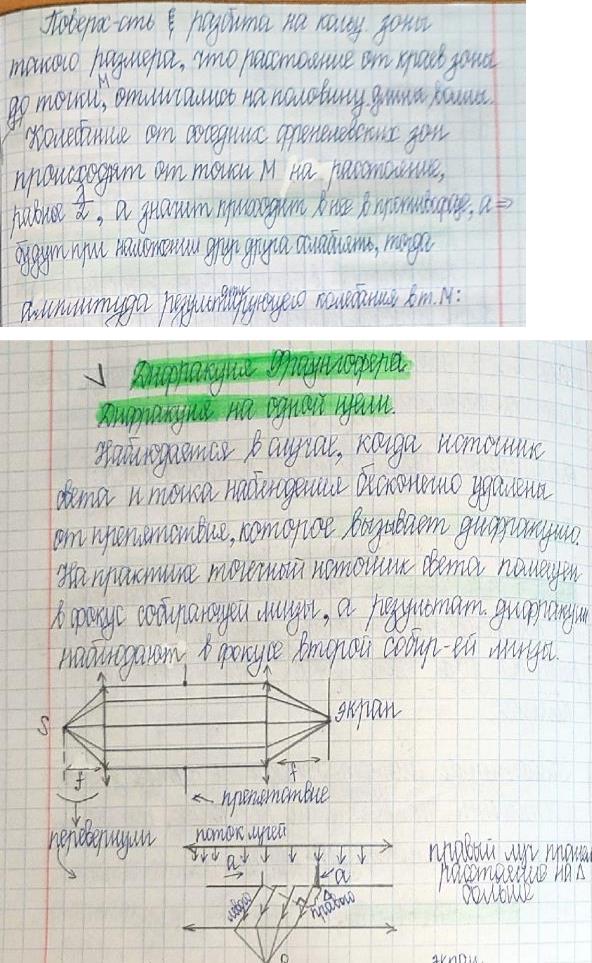 Поверх-сть ξ разбита на кольц зоны
такого размера, что расстояние от краев зоны
до точки М, отличались на половину длины волны.
Колебание от соседних френелевских зон
происходит от точки М на расстояние,
равное λ/2, а значит приходит в нее в противофазе, а ⇒
будут при наложении друг друга ослаблять, тогда
амплитуда результатирующего колебания в т. М:
√ Дифракция Фраунгофера.
Дифракция на одной щели.
Наблюдается в случае, когда источник
света и точка наблюдения бесконечно удалены
от препятствия, которое вызывает дифракцию.
На практике точечный источник света помещен
в фокус собирающей линзы, а результат. дифракции
наблюдают в фокусе второй собир-ей линзы.
S экран
f f
← препятствие
перевернули поток лучей
a a
левого правого Δ
правый луч
расстояние на Δ
больше
экран.